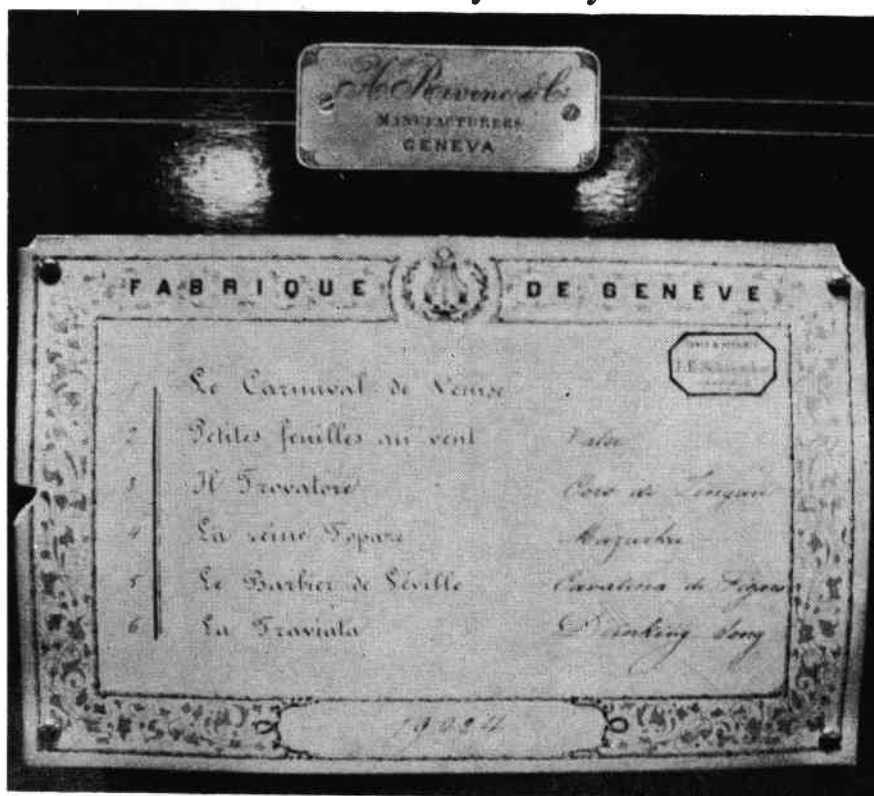 MANUFACTURERS
GENEVA
FABRIQUE DE GENÈVE
1 Le Carnaval de Venise
2 Petites feuilles au vent Valse
3 Il Trovatore Coro di Zingari
4 La reine Topaze Mazurka
5 Le Barbier de Séville Cavatina di Figaro
6 La Traviata Drinking Song
19024